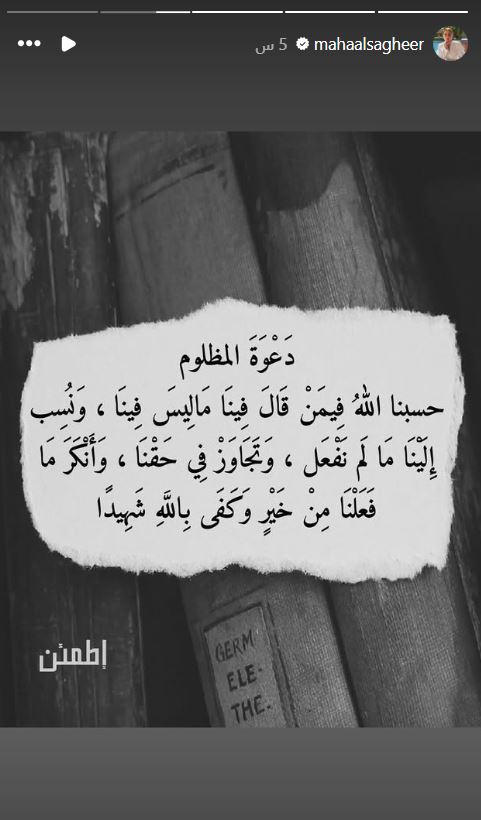 mahaalsagheer 5 س
دَعْوَةَ المظلوم
حسبنا اللهُ فِيمَنْ قَالَ فِينَا مَالِيسَ فِينَا ، وَنُسِب
إِلَيْنَا مَا لَم نَفْعَل ، وَتَجَاوَزْ فِي حَقْنَا ، وَأَنْكَرَ مَا
فَعَلْنَا مِنْ خَيْرٍ وَكَفَى بِاللَّهِ شَهِيدًا
إطمئن
GERM
ELE-
THE-